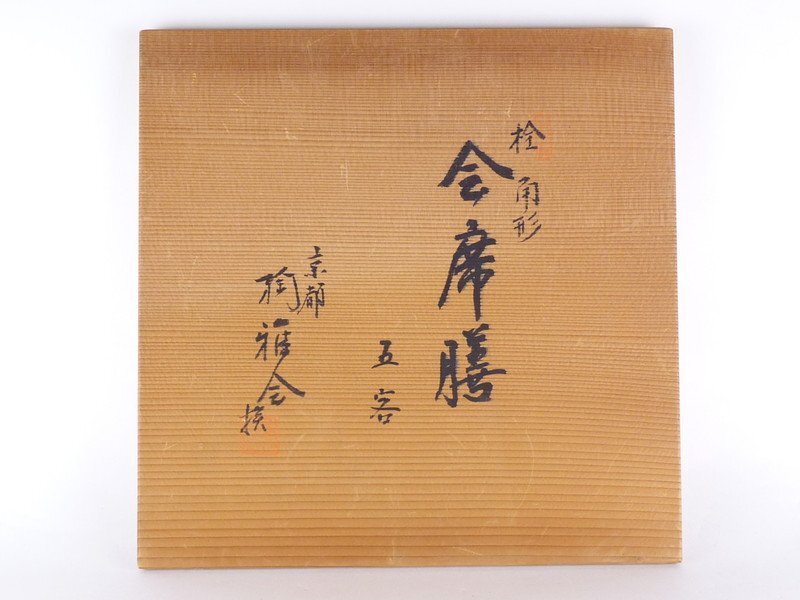 栓 角形
会席膳
五客
京都
陶雅会
撰